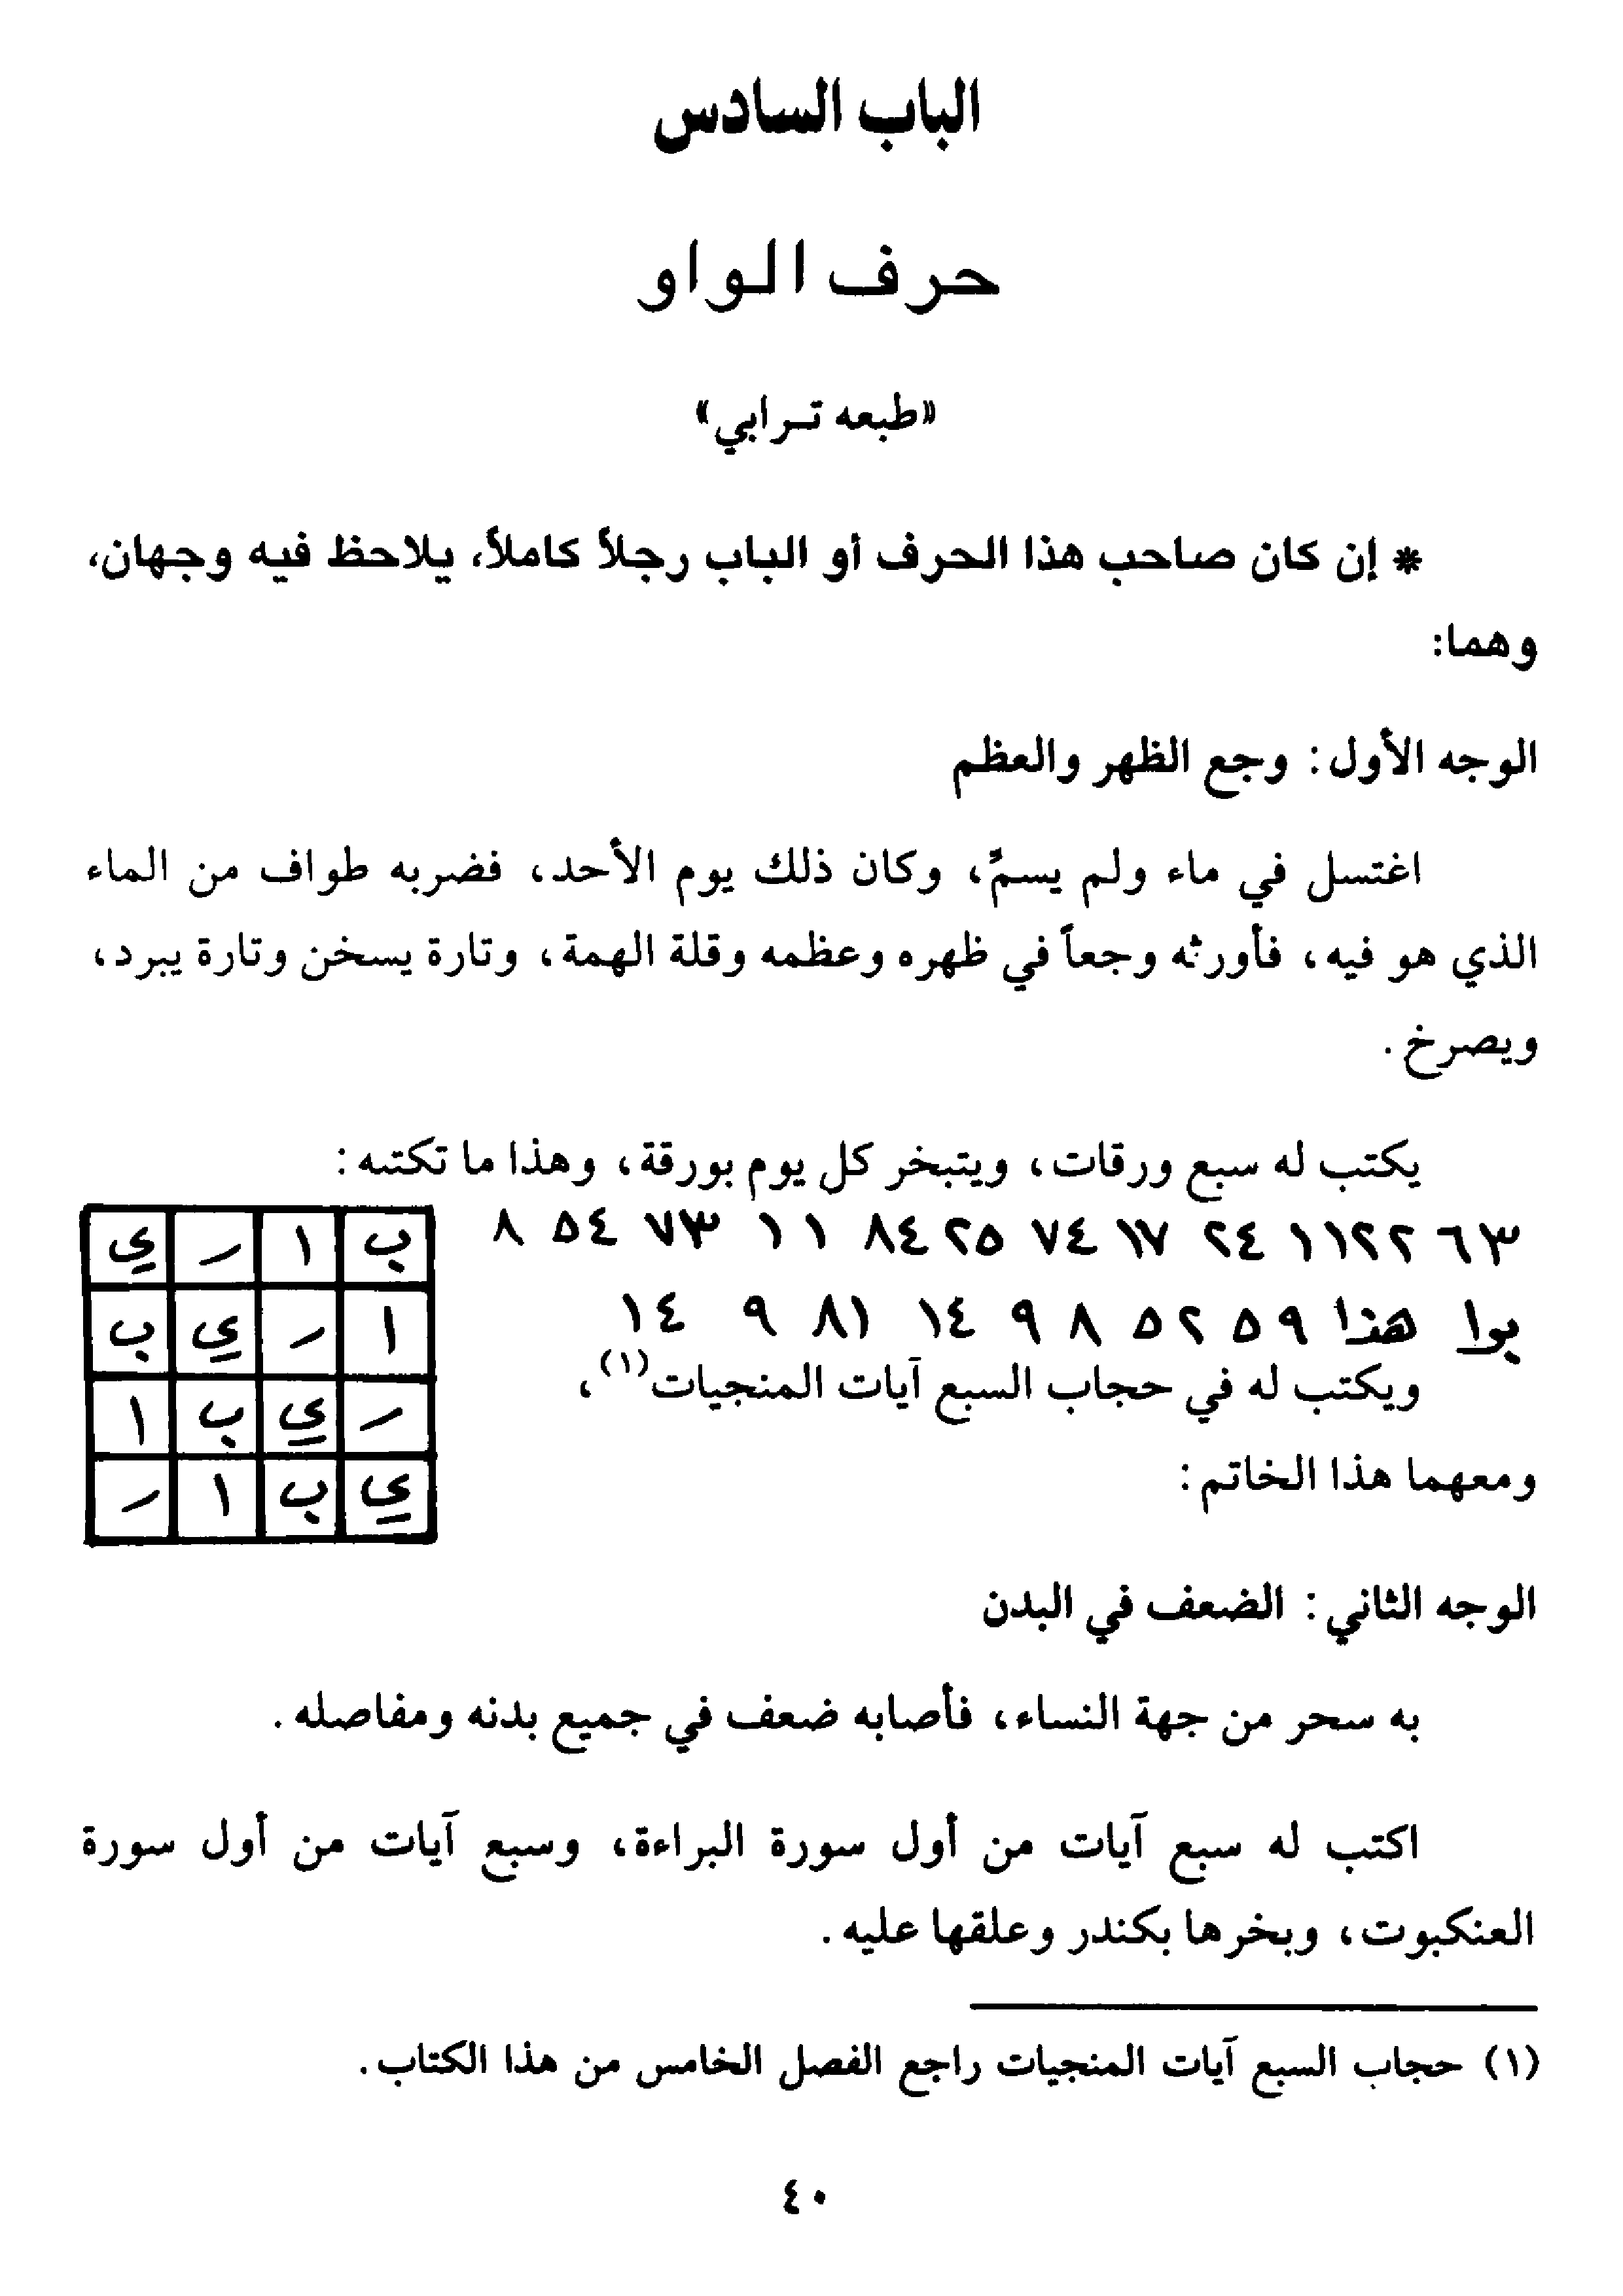 الباب السادس
حرف الواو
«طبعه ترابي»
* إن كان صاحب هذا الحرف أو الباب رجلاً كاملاً، يلاحظ فيه وجهان،
وهما:
الوجه الأول: وجع الظهر والعظم
اغتسل في ماء ولم يسمِّ، وكان ذلك يوم الأحد، فضربه طواف من الماء
الذي هو فيه، فأورثه وجعاً في ظهره وعظمه وقلة الهمة، وتارة يسخن وتارة يبرد،
ويصرخ.
يكتب له سبع ورقات، ويتبخر كل يوم بورقة، وهذا ما تكتبه:
٦٣ ١١٢٢ ٢٤ ١٧ ٧٤ ٢٥ ٨٤ ١١ ٧٣ ٥٤ ٨
بوا هذا ٥٩ ٥٢ ٨ ٩ ١٤ ٨١ ٩ ١٤
ويكتب له في حجاب السبع آيات المنجيات(١)،
ومعهما هذا الخاتم:
ب ا ر ي
ا ر ي ب
ر ي ب ا
ي ب ا ر
الوجه الثاني: الضعف في البدن
به سحر من جهة النساء، فأصابه ضعف في جميع بدنه ومفاصله.
اكتب له سبع آيات من أول سورة البراءة، وسبع آيات من أول سورة
العنكبوت، وبخرها بكندر وعلقها عليه.
(١) حجاب السبع آيات المنجيات راجع الفصل الخامس من هذا الكتاب.
٤٠